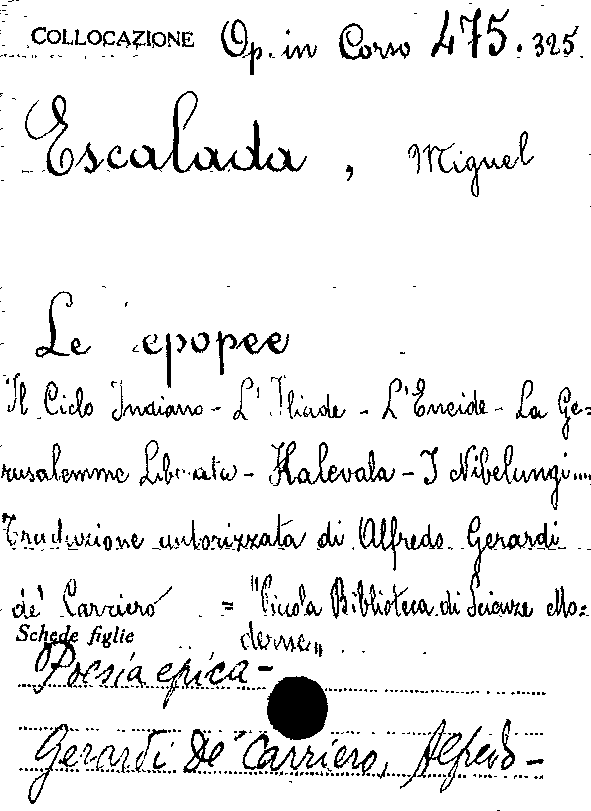 COLLOCAZIONE Op. in Corso 475.325
Escalada, Miguel
Le epopee
Il Ciclo Indiano - L'Iliade - L'Eneide - La Ge=
rusalemme Liberata - Kalevala - I Nibelungi....
Traduzione autorizzata di Alfredo Gerardi
de' Carriero = "Piccola Biblioteca di Scienze Mo=
derne"
Schede figlie
Poesia epica -
Gerardi De' Carriero, Alfredo -